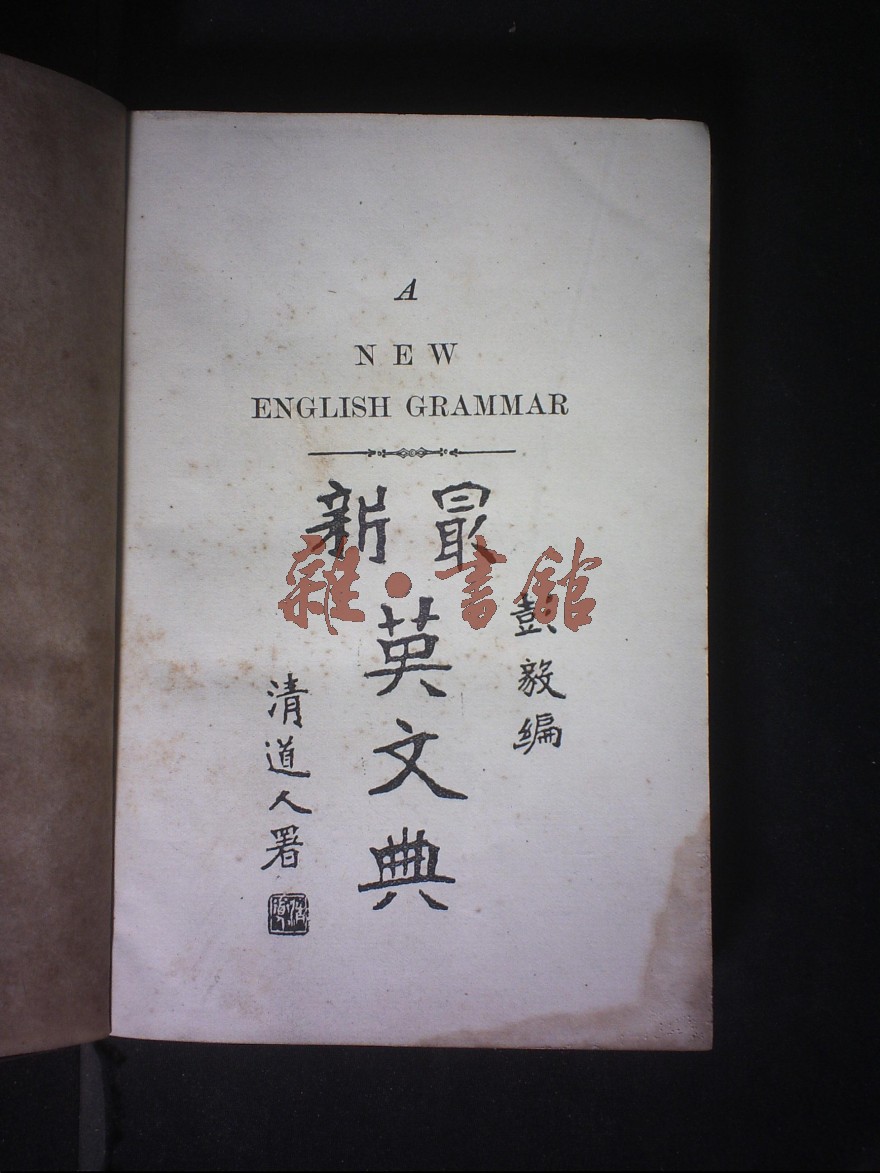 A
NEW
ENGLISH GRAMMAR
最新
英文典
彭毅編
清道人署
雜·書館